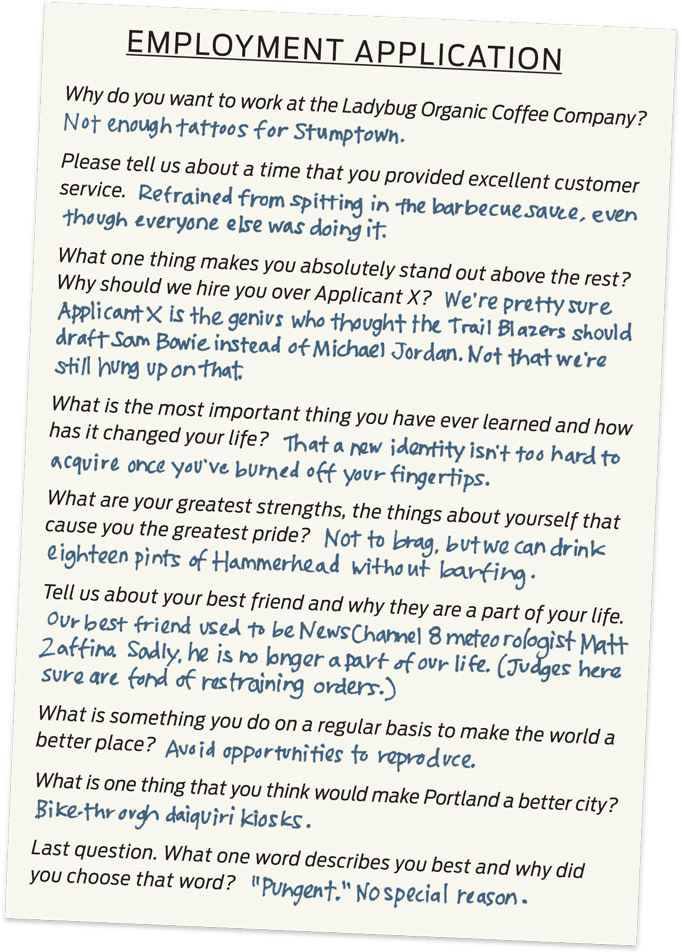 EMPLOYMENT APPLICATION
Why do you want to work at the Ladybug Organic Coffee Company?
Not enough tattoos for Stumptown.
Please tell us about a time that you provided excellent customer
service. Refrained from spitting in the barbecue sauce, even
though everyone else was doing it.
What one thing makes you absolutely stand out above the rest?
Why should we hire you over Applicant X? We're pretty sure
Applicant X is the genius who thought the Trail Blazers should
draft Sam Bowie instead of Michael Jordan. Not that we're
still hung up on that.
What is the most important thing you have ever learned and how
has it changed your life? That a new identity isn't too hard to
acquire once you've burned off your fingertips.
What are your greatest strengths, the things about yourself that
cause you the greatest pride? Not to brag, but we can drink
eighteen pints of Hammerhead without barfing.
Tell us about your best friend and why they are a part of your life.
Our best friend used to be NewsChannel 8 meteorologist Matt
Zaffina. Sadly, he is no longer a part of our life. (Judges here
sure are fond of restraining orders.)
What is something you do on a regular basis to make the world a
better place? Avoid opportunities to reproduce.
What is one thing that you think would make Portland a better city?
Bike-through daiquiri kiosks.
Last question. What one word describes you best and why did
you choose that word? "Pungent." No special reason.